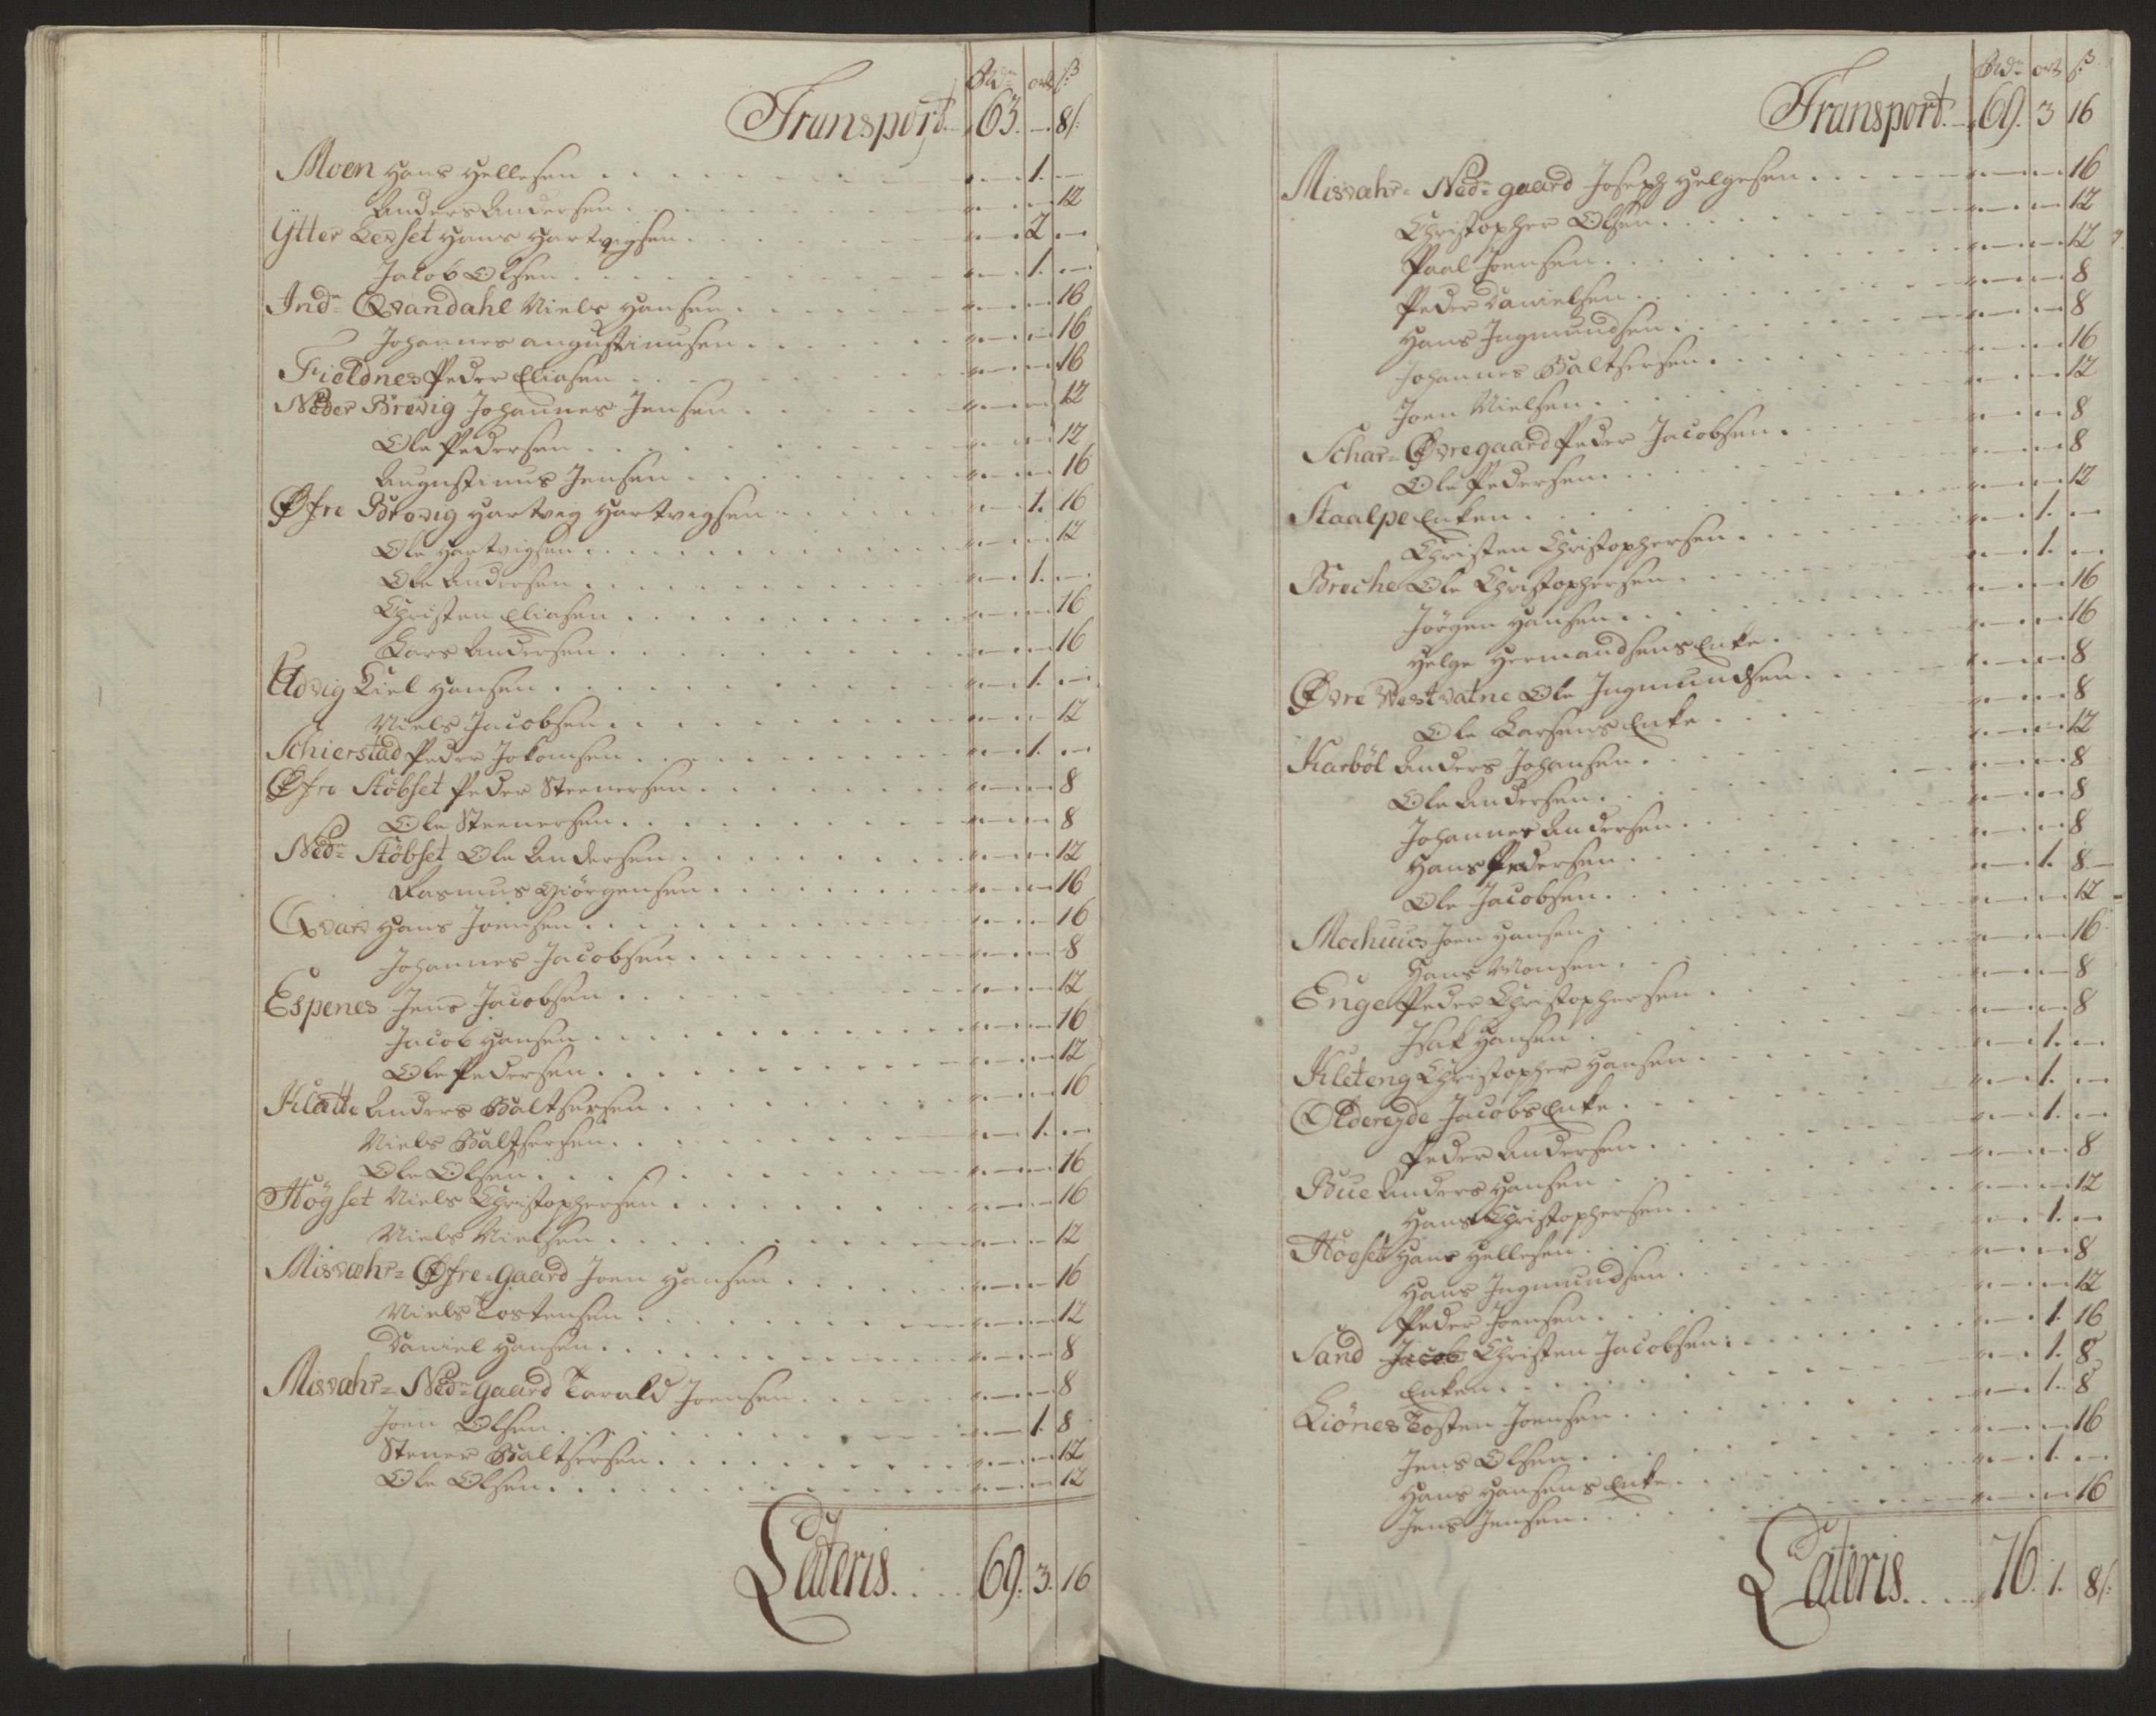 Rdr ort ß
Transport. 63. — 8/:
Moen Hans Hellesen . . . 1. —
Anders Andersen . . . 12
Ytter Lerset Hans Hartvigsen . . . 2 —
Jacob Olsen . . . 1. —
Indr Qvandahl Niels Hansen . . . 16
Johannes Augustinusen . . . 16
Fieldnes Peder Eliasen . . . 16
Neder Brevig Johannes Jensen . . . 12
Ole Pedersen . . . 12
Augustinus Jensen . . . 16
Øfre Brevig Hartvig Hartvigsen . . . 1. 16
Ole Hartvigsen . . . 12
Ole Andersen . . . 1. —
Christen Eliasen . . . 16
Lars Andersen . . . 16
Udvig Kiel Hansen . . . 1. —
Niels Jacobsen . . . 12
Schierstad Peder Jokomsen . . . 1. —
Øfre Støbset Peder Steenersen . . . 8
Ole Steenersen . . . 8
Nedr Støbset Ole Andersen . . . 12
Rasmus Giörgensen . . . 16
Qvarv Hans Joensen . . . 16
Johannes Jacobsen . . . 8
Espenes Jens Jacobsen . . . 12
Jacob Hansen . . . 16
Ole Pedersen . . . 12
Klætte Anders Baltsersen . . . 16
Niels Baltsersen . . . 1. —
Ole Olsen . . . 16
Høgset Niels Christophersen . . . 16
Niels Nielsen . . . 12
Misvæhr= Øfre=gaard Joen Hansen . . . 16
Niels Tostensen . . . 12
Daniel Hansen . . . 8
Misvæhr= Nedr gaard Tarald Joensen . . . 8
Joen Olsen . . . 1. 8
Stener Baltsersen . . . 12
Ole Olsen . . . 12
Lateris. . . . 69. 3. 16
Rdr ort ß
Transport. 69. 3 16
Misvæhr= Nedr gaard Joseph Helgesen . . . 16
Christopher Olsen . . . 12
Paal Joensen . . . 12
Peder Danielsen . . . 8
Hans Ingmundsen . . . 8
Johannes Baltsersen . . . 16
Joen Nielsen . . . 12
Schar= Øvregaard Peder Jacobsen . . . 8
Ole Pedersen . . . 8
Staalpe Enken . . . 12
Christen Christophersen . . . 1. —
Breche Ole Christophersen . . . 1. —
Jørgen Hansen . . . 16
Helge Hermandsens Enke . . . 16
Øvre Vestvatne Ole Ingmundsen . . . 8
Ole Larsens Enke . . . 8
Karbøl Anders Johansen . . . 12
Ole Andersen . . . 8
Johannes Andersen . . . 8
Hans Pedersen . . . 8
Ole Jacobsen . . . 1. 8
Mochuus Joen Hansen . . . 12
Hans Monsen . . . 16
Enge Peder Christophersen . . . 8
Isak Hansen . . . 8
Kleteng Christopher Hansen . . . 1. —
Oldereyde Jacobs Enke . . . 1. —
Peder Andersen . . . 1. —
Bue Anders Hansen . . . 8
Hans Christophersen . . . 12
Høeset Hans Hellesen . . . 1. —
Hans Ingmundsen . . . 8
Peder Joensen . . . 12
Sand Jacob Christen Jacobsen: . . . 1. 16
Enken . . . 1. 8
Liönes Tosten Joensen . . . 1. 8
Jens Olsen . . . 16
Hans Hansens Enke . . . 1. —
Jens Jensen . . . 16
Lateris. . . . 76. 1. 8/: